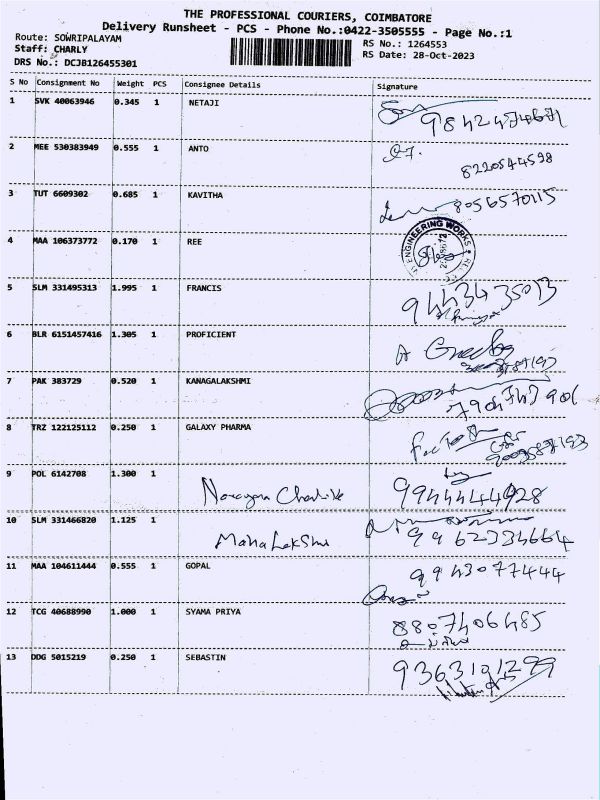 THE PROFESSIONAL COURIERS, COIMBATORE
Delivery Runsheet - PCS - Phone No.:0422-3505555 - Page No.:1
Route: SOWRIPALAYAM
Staff: CHARLY
DRS No.: DCJB126455301
RS No.: 1264553
RS Date: 28-Oct-2023
S No Consignment No Weight PCS Consignee Details Signature
1 SVK 40063946 0.345 1 NETAJI
9842474671
2 MEE 530383949 0.555 1 ANTO
8220544598
3 TUT 6609302 0.685 1 KAVITHA 8056570115
4 MAA 106373772 0.170 1 REE
ENGINEERING WORKS
5 SLM 331495313 1.995 1 FRANCIS
9443435013
6 BLR 6151457416 1.305 1 PROFICIENT
7 PAK 383729 0.520 1 KANAGALAKSHMI
8 TRZ 122125112 0.250 1 GALAXY PHARMA
9 POL 6142708 1.300 1
9944444928
10 SLM 331466820 1.125 1
Mahalakshmi 9962334664
11 MAA 104611444 0.555 1 GOPAL
9943077444
12 TCG 40688990 1.000 1 SYAMA PRIYA
8807406485
13 DDG 5015219 0.250 1 SEBASTIN
9363101299